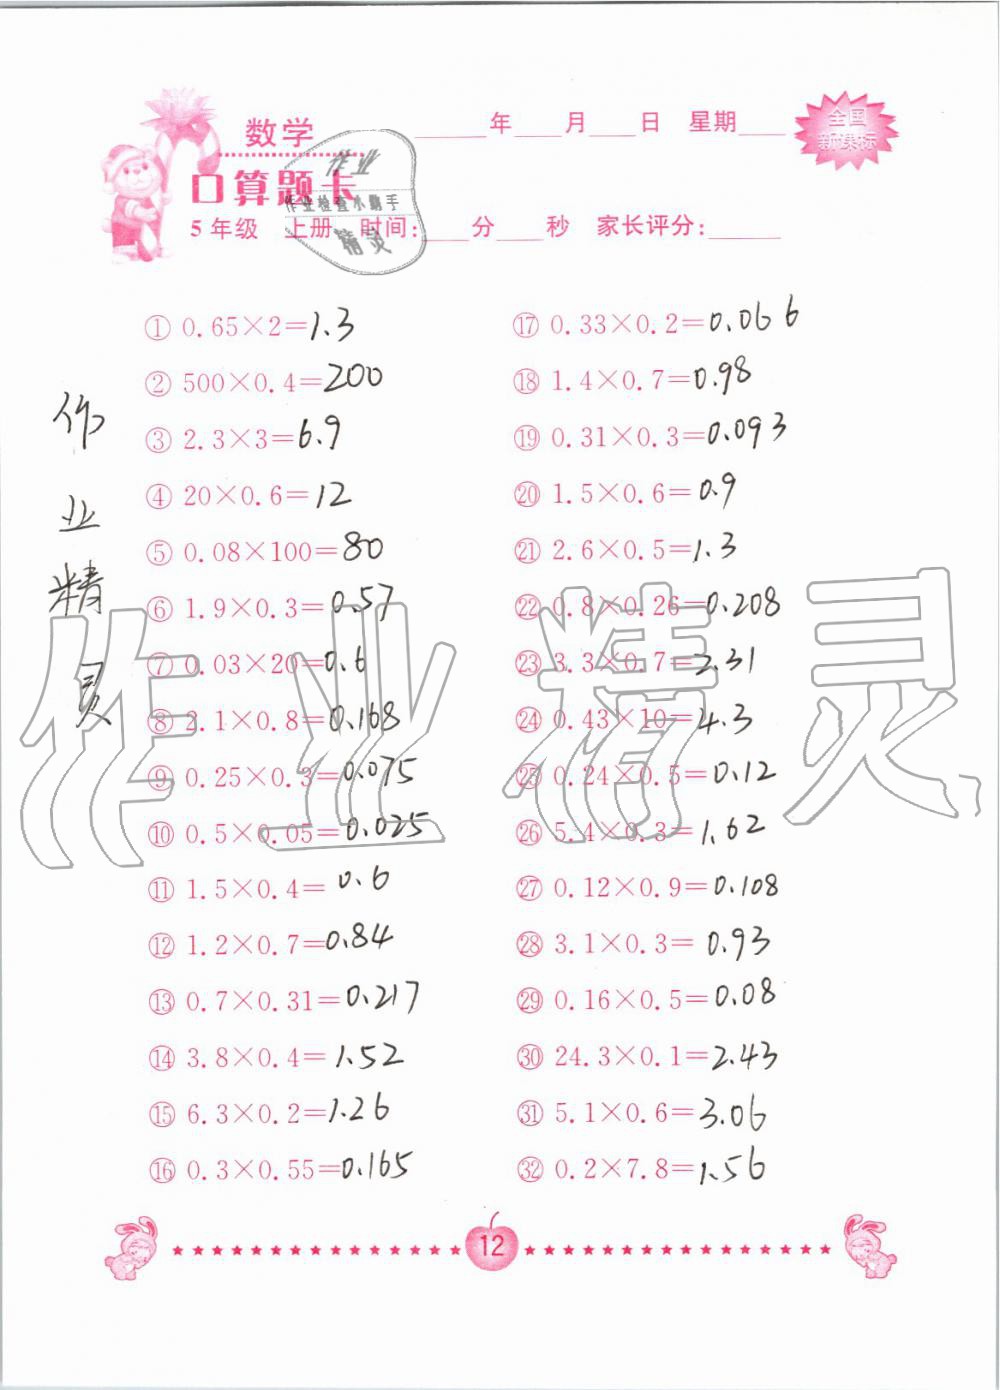 数学
____年____月____日 星期____
全国
新课标
口算题卡
作业
作业检查小助手
精灵
5年级 上册 时间:____分____秒 家长评分:______
① 0.65×2=1.3
② 500×0.4=200
③ 2.3×3=6.9
④ 20×0.6=12
⑤ 0.08×100=80
⑥ 1.9×0.3=0.57
⑦ 0.03×20=0.6
⑧ 2.1×0.8=0.168
⑨ 0.25×0.3=0.075
⑩ 0.5×0.05=0.025
⑪ 1.5×0.4=0.6
⑫ 1.2×0.7=0.84
⑬ 0.7×0.31=0.217
⑭ 3.8×0.4=1.52
⑮ 6.3×0.2=1.26
⑯ 0.3×0.55=0.165
⑰ 0.33×0.2=0.066
⑱ 1.4×0.7=0.98
⑲ 0.31×0.3=0.093
⑳ 1.5×0.6=0.9
㉑ 2.6×0.5=1.3
㉒ 0.8×0.26=0.208
㉓ 3.3×0.7=2.31
㉔ 0.43×10=4.3
㉕ 0.24×0.5=0.12
㉖ 5.4×0.3=1.62
㉗ 0.12×0.9=0.108
㉘ 3.1×0.3=0.93
㉙ 0.16×0.5=0.08
㉚ 24.3×0.1=2.43
㉛ 5.1×0.6=3.06
㉜ 0.2×7.8=1.56
作业精灵
作业精灵
12